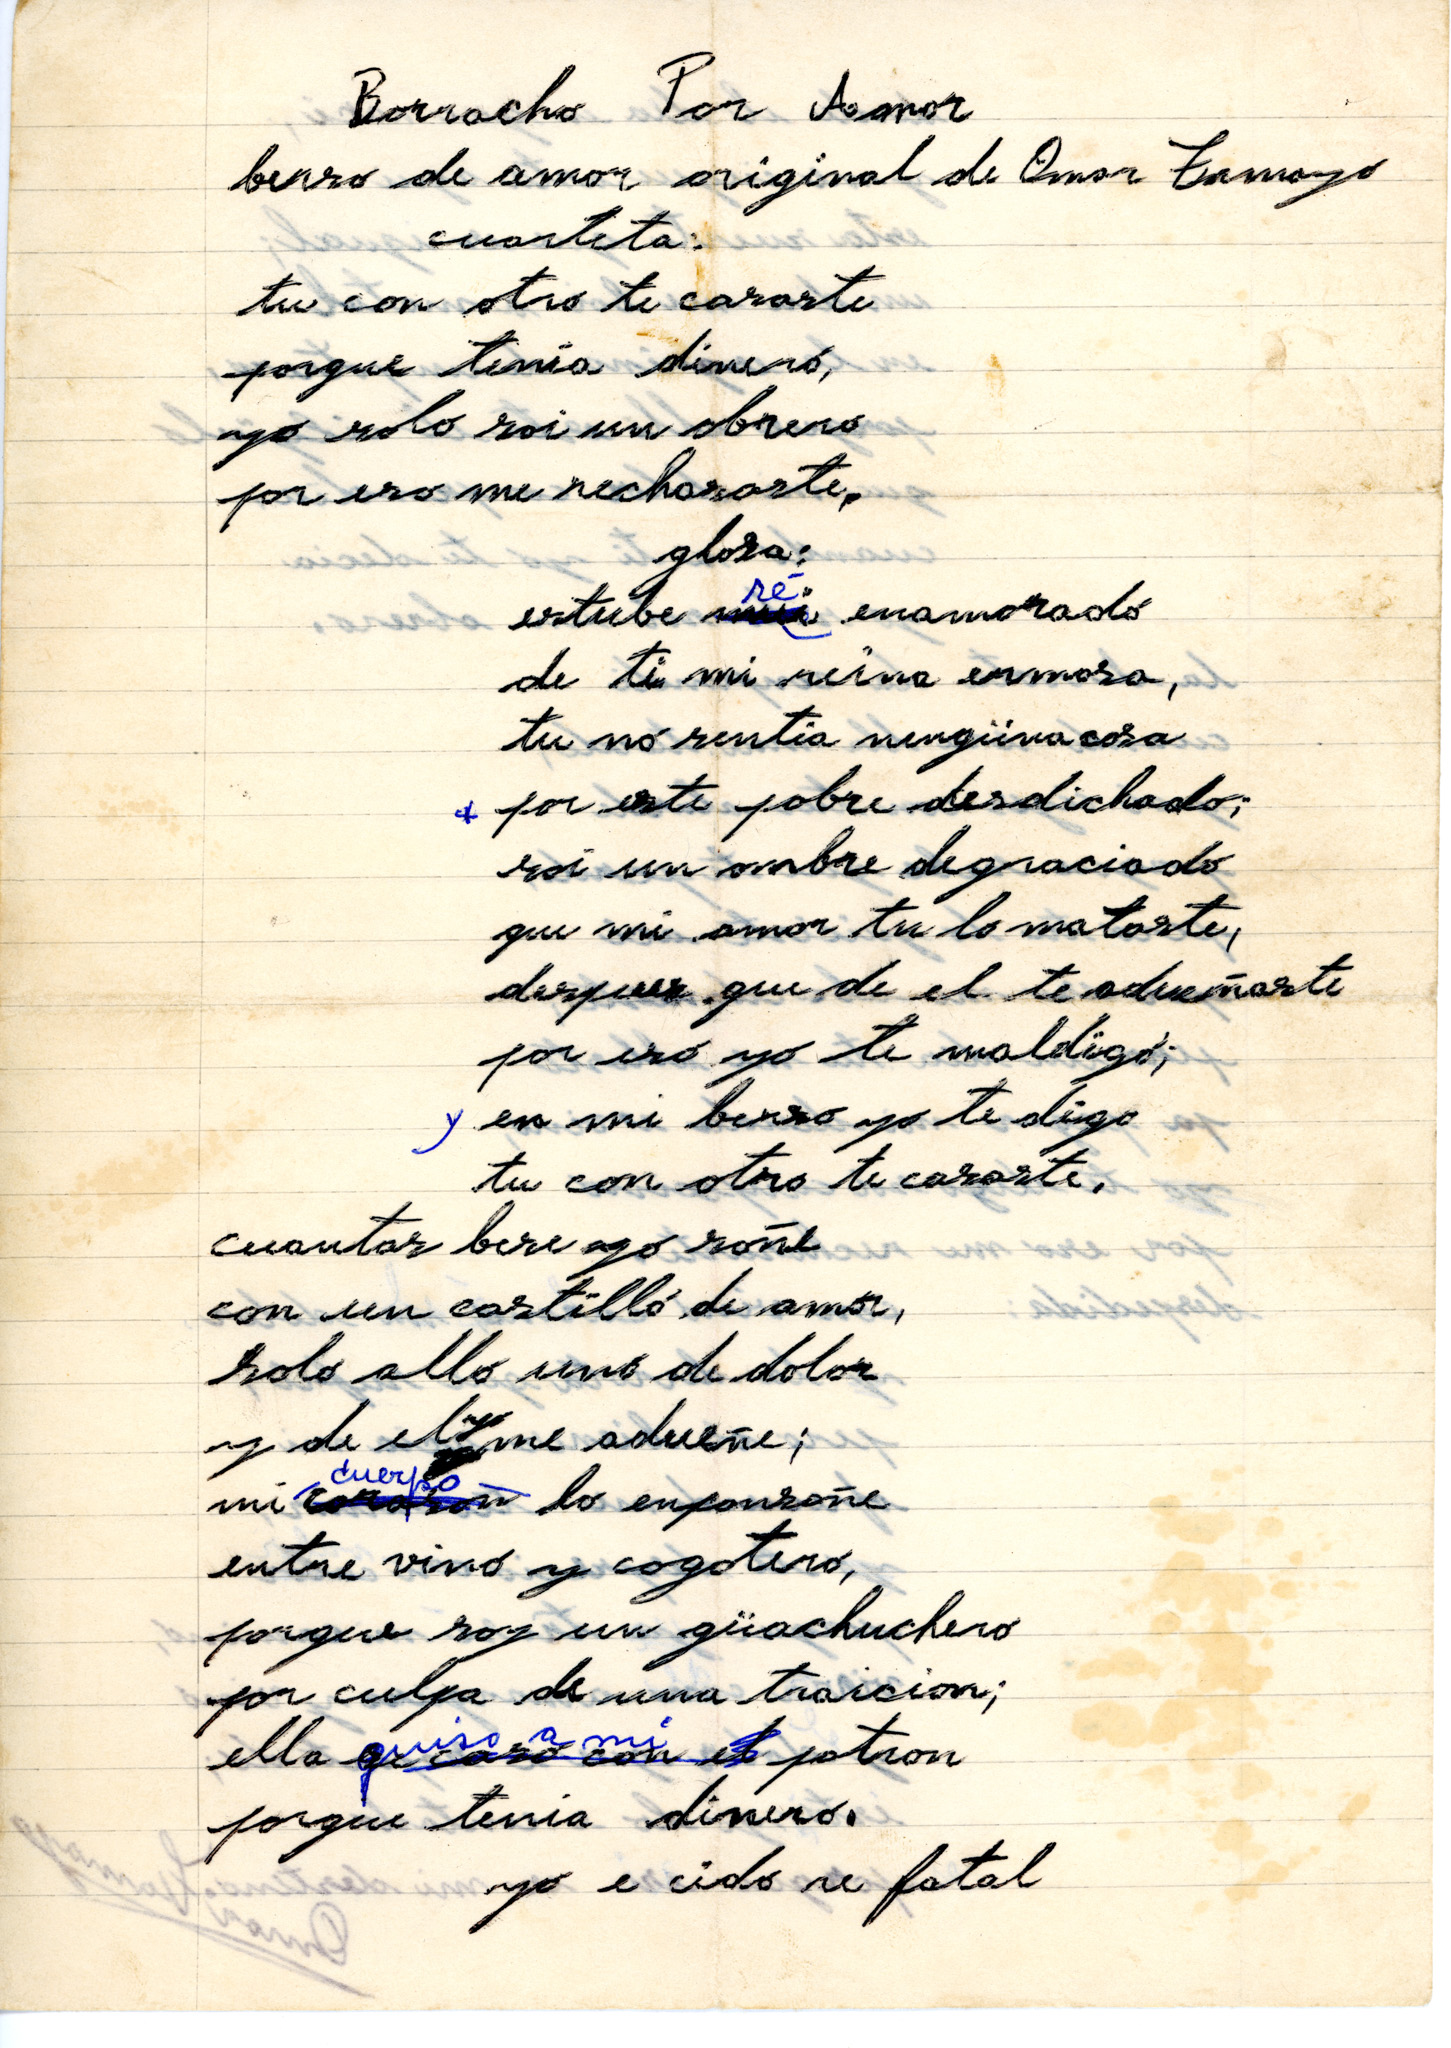 Borracho Por Amor
berso de amor original de Omar Tamayo
cuarteta:
tu con otro te casaste
porque tenia dinero,
yo solo soi un obrero
por eso me rechasaste.
glosa:
estube re enamorado
de ti mi reina ermosa,
tu no sentia nengüna cosa
* por este pobre desdichado;
soi un ombre degraciado
que mi amor tu lo mataste,
despues que de el te adueñaste
por eso yo te maldigo;
y en mi berso yo te digo
tu con otro te casaste.
cuantas bese yo soñe
con un castillo de amor,
solo allo uno de dolor
y de el yo me adueñe;
mi cuerpo corason lo enponsoñe
entre vino y cogotero,
porque soy un güachuchero
por culpa de una traicion;
ella quiso a mi se caso con el patron
porque tenia dinero.
yo e cido re fatal